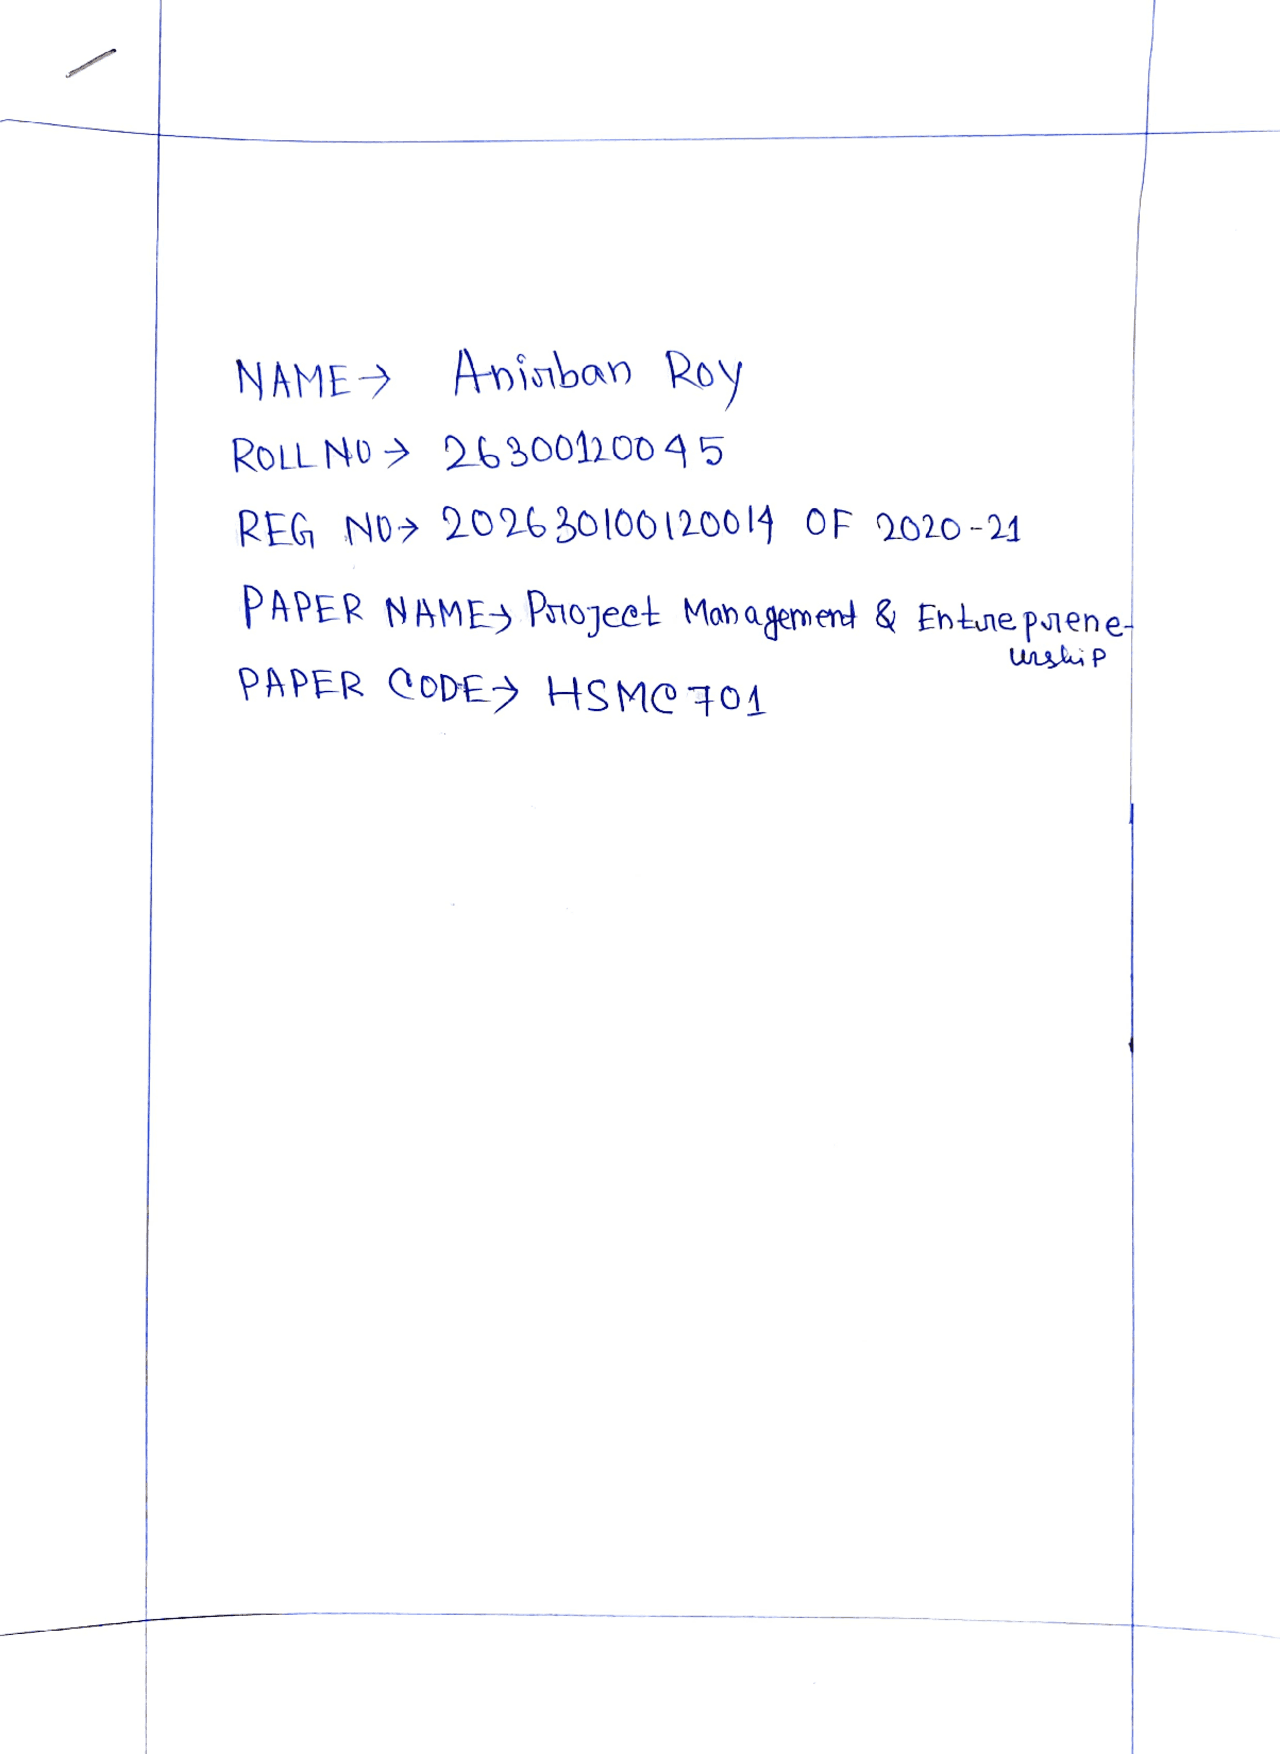 NAME→ Anirban Roy
ROLL NO→ 26300120045
REG NO→ 202630100120014 OF 2020-21
PAPER NAME→ Project Management & Entreprene-
urship
PAPER CODE→ HSMC701